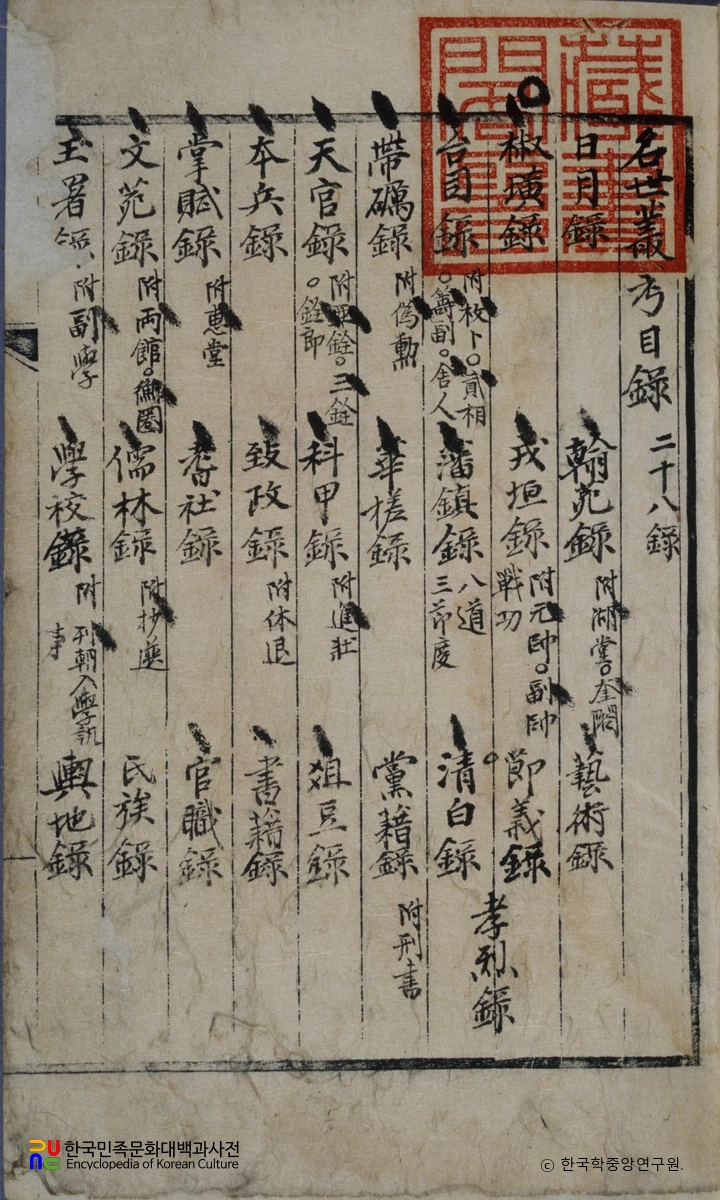 名世叢考目錄 二十八錄
日月錄 翰苑錄 附湖堂。奎閣 藝術錄
椒璜錄 戎垣錄 附元帥。副帥 戰功 節義錄 孝烈錄
台司錄 附枚卜。貳相。籌副。舍人 藩鎮錄 八道三節度 清白錄
帶礪錄 附僞勳 華槎錄 黨籍錄 附刑書
天官錄 附亞銓。三銓。銓郎 科甲錄 附進壯 俎豆錄
本兵錄 致政錄 附休退 書籍錄
掌賦錄 附惠堂 耆社錄 官職錄
文苑錄 附兩館。圈 儒林錄 附抄選 氏族錄
玉署錄 附副學 學校錄 附 朝入學執事 輿地錄
한국민족문화대백과사전
Encyclopedia of Korean Culture
ⓒ 한국학중앙연구원.